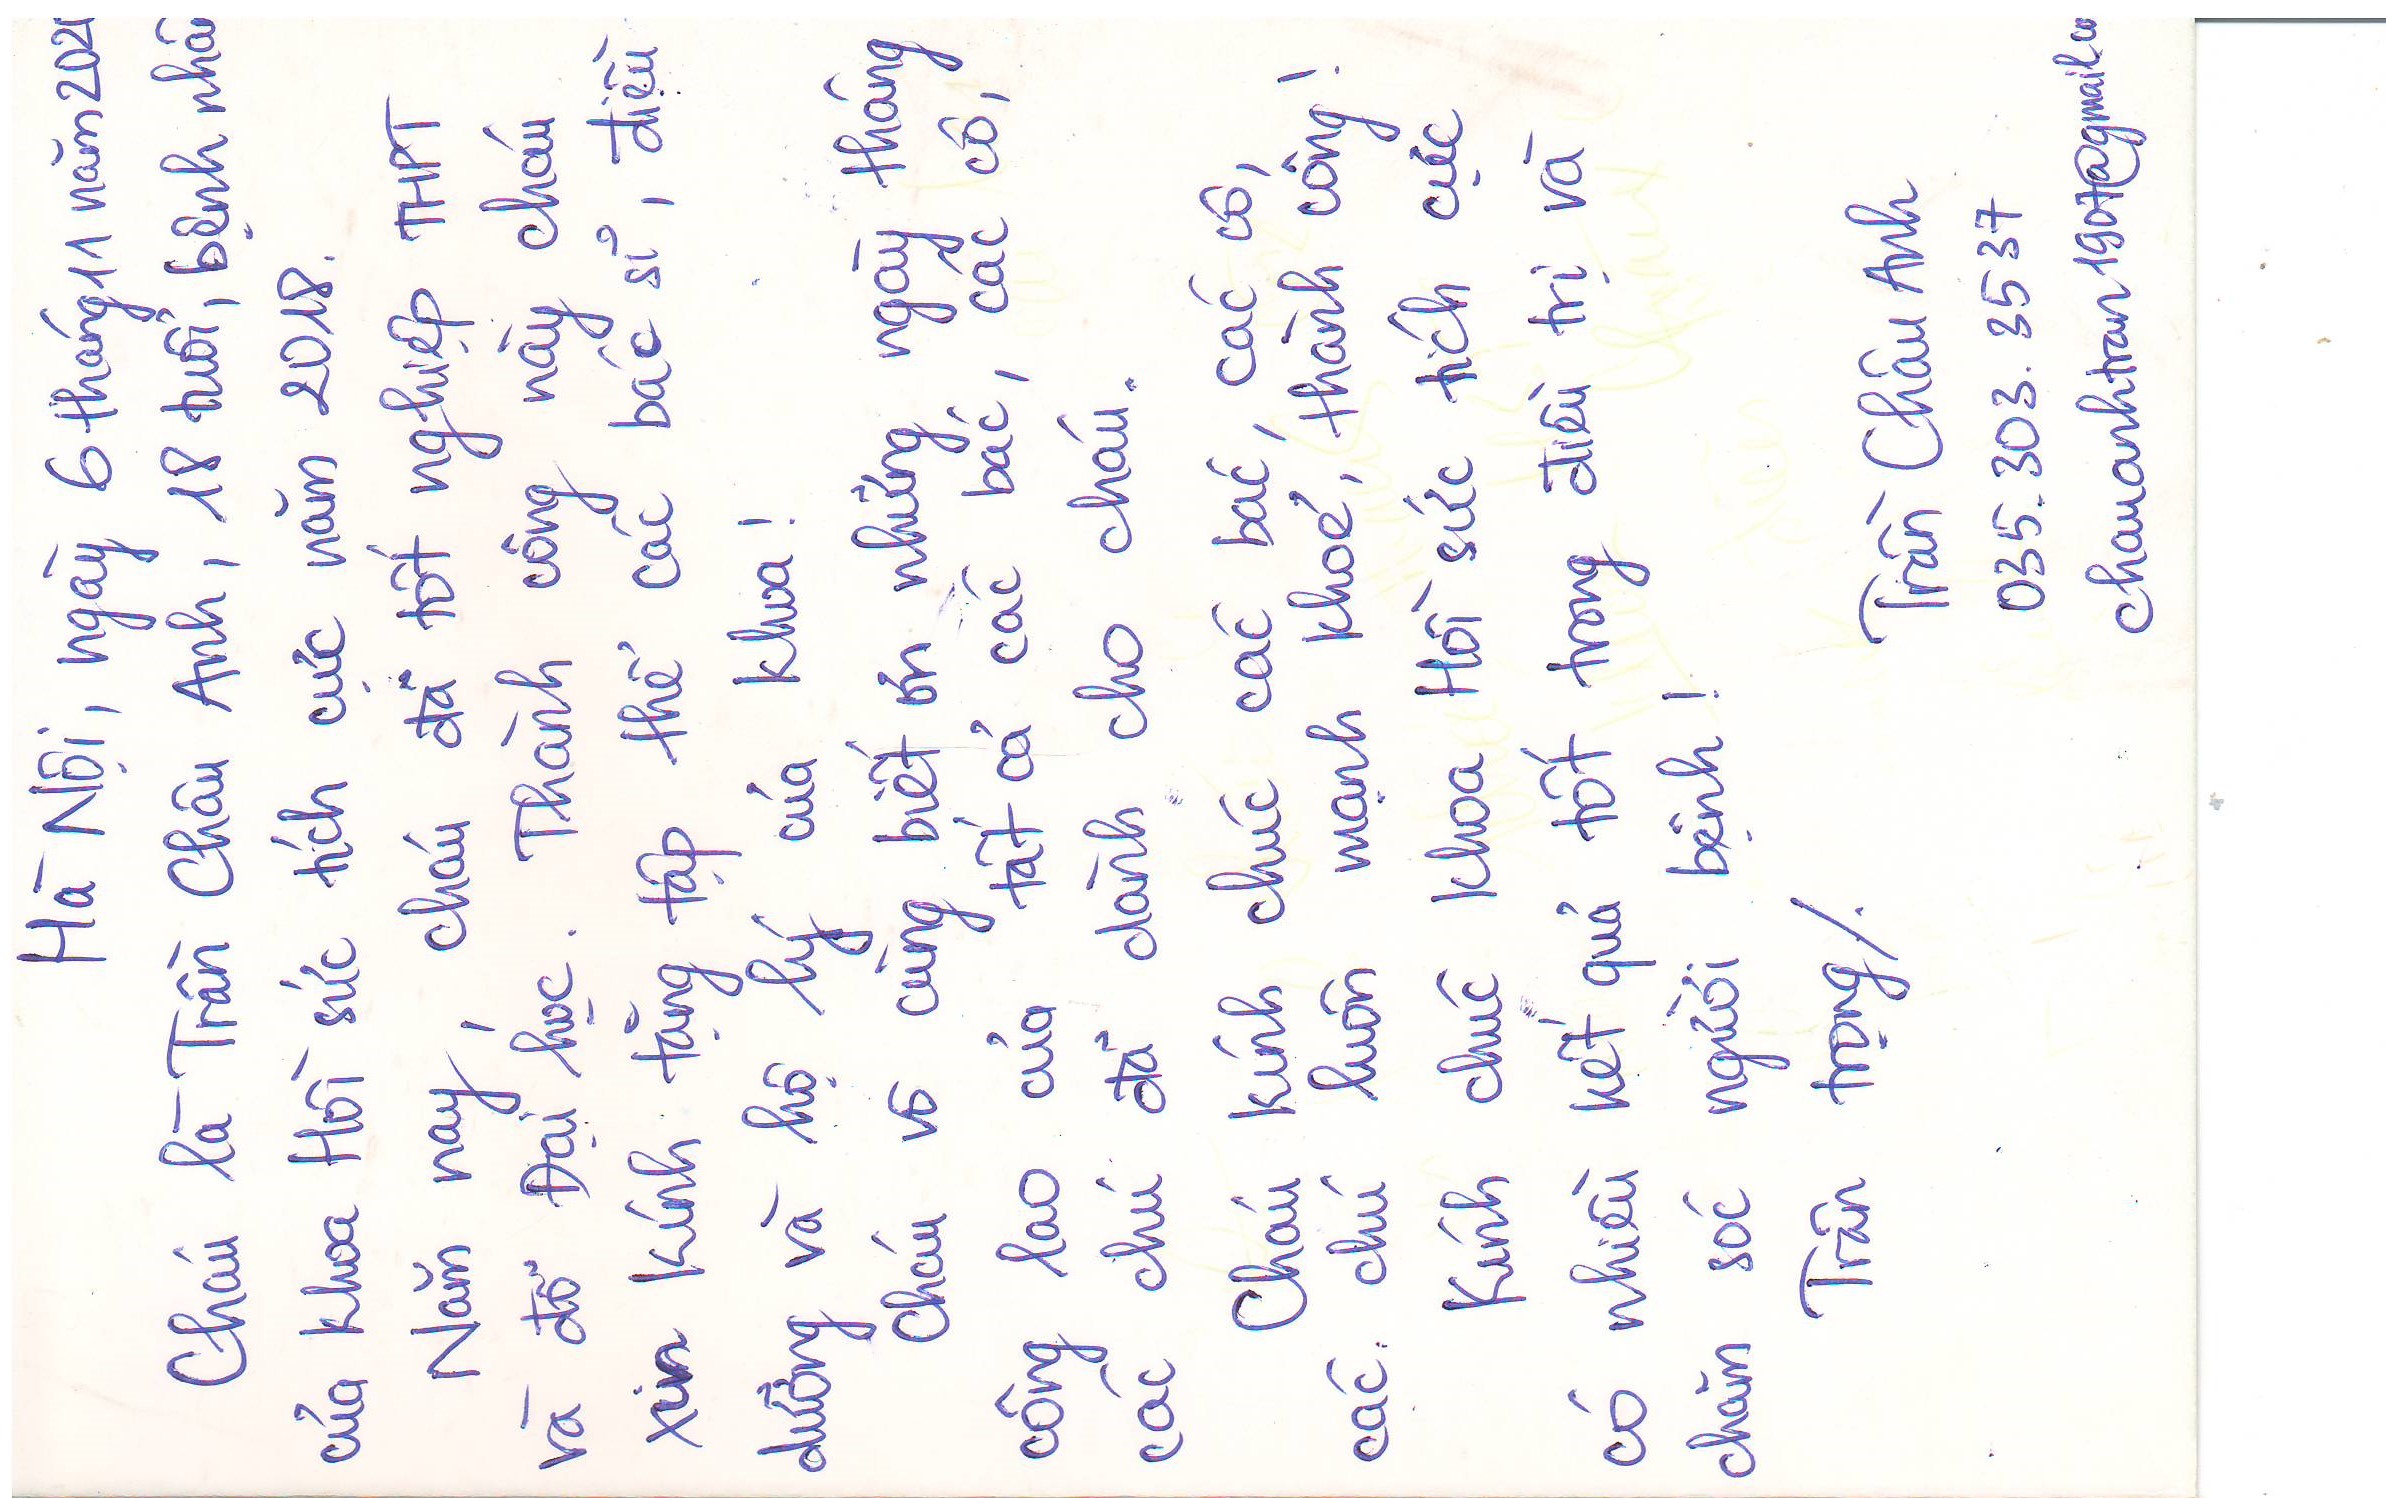 Hà Nội, ngày 6 tháng 11 năm 202
Cháu là Trần Châu Anh, 18 tuổi, bệnh nhâ
của khoa Hồi sức tích cực năm 2018.
Năm nay, cháu đã tốt nghiệp THPT
và đỗ Đại học. Thành công này cháu
xin kính tặng tập thể các bác sĩ, điều
dưỡng và hộ lý của khoa!
Cháu vô cùng biết ơn những ngày tháng
công lao của tất cả các bác, các cô,
các chú đã dành cho cháu.
Cháu kính chúc các bác, các cô,
các chú luôn mạnh khoẻ, thành công!
Kính chúc khoa Hồi sức tích cực
có nhiều kết quả tốt trong điều trị và
chăm sóc người bệnh!
Trân trọng/.
Trần Châu Anh
035.303.3537
chauanhtran1907@gmail.co